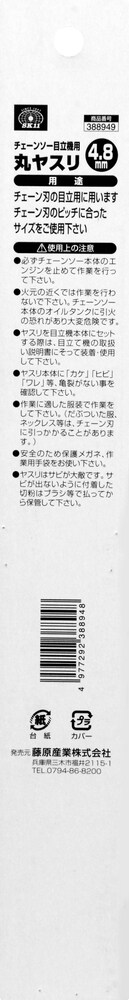 SK11
商品番号
388949
チェーンソー目立機用
丸ヤスリ
4.8
mm
用途
チェーン刃の目立用に用います
チェーン刃のピッチに合った
サイズをご使用下さい
⚠使用上の注意
●必ずチェーンソー本体のエ
ンジンを止めて作業を行っ
て下さい。
●火元の近くでは作業を行わ
ないで下さい。チェーンソー
本体のオイルタンクに引火
の恐れがあり大変危険です。
●ヤスリを目立機本体にセット
する際は、目立て機の取扱
い説明書にそって装着・使用
して下さい。
●ヤスリ本体に「カケ」「ヒビ」
「ワレ」等、亀裂がない事を
確認して下さい。
●作業に適した服装で作業を
して下さい。(だぶついた服、
ネックレス等は、チェーン刃
に引っかかることがありま
す。)
●安全のため保護メガネ、作
業用手袋をお使い下さい。
●ヤスリはサビが大敵です。サ
ビが出ないように付着した
切粉はブラシ等で払ってか
ら保管して下さい。
4 977292 388948
紙
台紙
プラ
カバー
発売元 藤原産業株式会社
兵庫県三木市福井2115-1
TEL.0794-86-8200